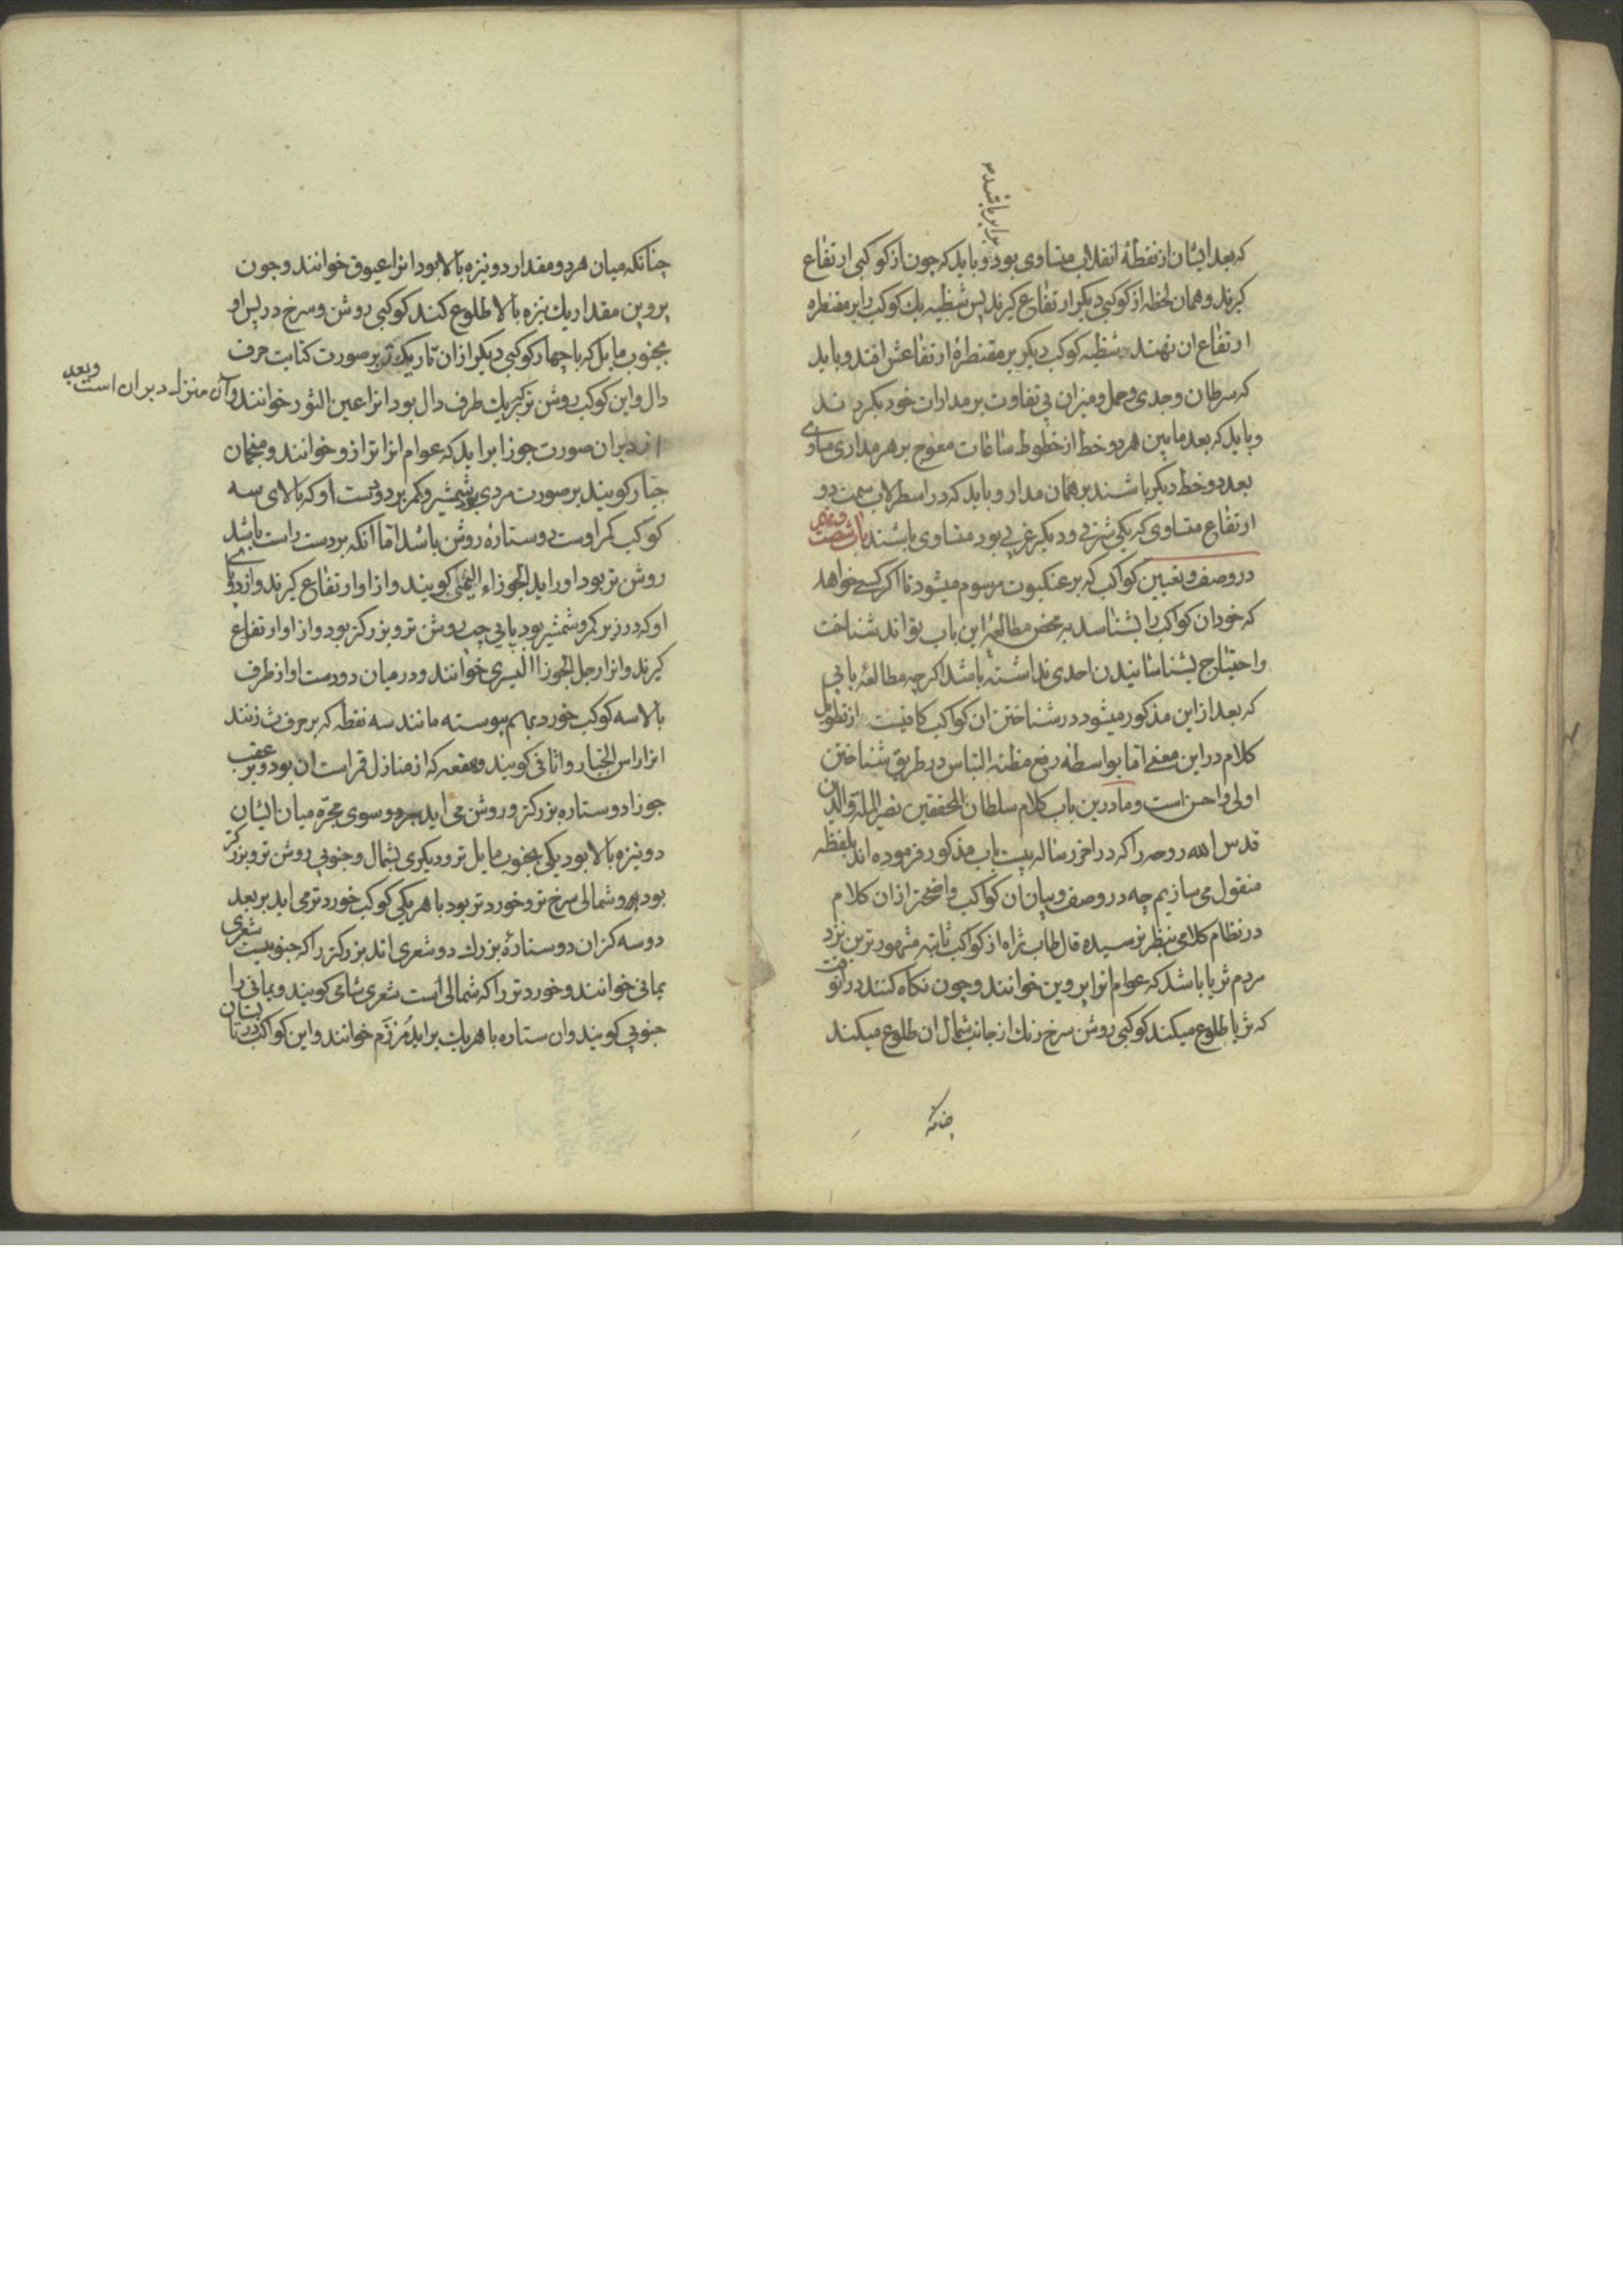 برابر باشند
که بعد ایشان از نقطۀ انقلاب متساوی بود و باید که چون از کوکبی ارتفاع
کیرند و همان لحظه از کوکبی دیکر ارتفاع کیرند پس شظیه یك کوکب را بر مقنطره
ارتفاع ان نهند شظیه کوکب دیکر بر مقنطرۀ ارتفاعش افتد و باید
که سرطان و جدی و حمل و میزان بی تفاوت بر مدارات خود بکردند
و باید که بعد مابین هر دو خط از خطوط ساعات معوج بر هر مداری مساوی
بعد دو خط دیکر باشند بر همان مدار و باید که در اسطرلاب سمت دو
ارتفاع متساوی که یکی شرقی و دیکر غربی بود متساوی باشند باب شصت
در وصف و تعیین کواکب که بر عنکبوت مرسوم میشود تا اکر کسی خواهد
که خود ان کواکب را بشناسد به محض مطالعۀ این باب تواند شناخت
و احتیاج بشناسانیدن احدی نداشته باشد اکرچه مطالعۀ بابی
که بعد از این مذکور میشود در شناختن ان کواکب کافیست از تطویل
کلام در این معنی اما بواسطه رفع مظنه التباس در طریق شناختن
اولی و احسن است و ما درین باب کلام سلطان المحققین نصیر الملة والدین
قدس الله روحه را که در اخر رساله بیست باب مذکور فرموده اند بلفظه
منقول می سازیم چه در وصف و بیان ان کواکب واضحتر از ان کلام
در نظام کلامی بنظر نرسیده قال طاب ثراه از کواکب ثابته مشهورترین نزد
مردم ثریا باشد که عوام انرا پروین خوانند و چون نکاه کنند در انوقت
که ثریا طلوع میکند کوکبی روشن سرخ رنك از جانب شمال ان طلوع میکند
چنانکه
چنانکه میان هر دو مقدار دو نیزه بالا بود انرا عیوق خوانند و چون
پروین مقدار یك نیزه بالا طلوع کند کوکبی روشن و سرخ در پس او
بجنوب مایل که با چهار کوکبی دیکر از ان تاریك تر بر صورت کتابت حرف
دال و این کوکب روشن تر که بر یك طرف دال بود انرا عین الثور خوانند و آن منزل دبران است و بعد
از دبران صورت جوزا براید که عوام انرا ترازو خوانند و منجمان
جبار کویند بر صورت مردی با شمشیر و کمر بر دو دست او که بالای سه
کوکب کمر اوست دو ستارۀ روشن باشد اما انکه بر دست راست باشد
روشن تر بود او را ید الجوزاء الیمنی کویند و از او ارتفاع کیرند و از دو پای
او که در زیر کمر و شمشیر بود پای چپ روشن تر و بزرکتر بود و از او ارتفاع
کیرند و انرا رجل الجوزا الیسری خوانند و در میان دو دست او از طرف
بالا سه کوکب خورد بهم پیوسته مانند سه نقطه که بر حرف ث زنند
انرا راس الجبار و اثافی کویند و هقعه که از منازل قمر است ان بود و بر عقب
جوزا دو ستاره بزرکتر و روشن می اید بر دو سوی مجرّه میان ایشان
دو نیزه بالا بود یکی بجنوب مایل تر و دیکری بشمال و جنوبی روشن تر و بزرکتر
بود و شمالی سرخ تر و خوردتر بود با هر یکی کوکب خوردتر می اید بر بعد
دو سه کز ان دو ستارۀ بزرك دو شعری اند بزرکتر را که جنوبیست شعری
یمانی خوانند و خوردتر را که شمالی است شعری شامی کویند و یمانی را
جنوبی کویند و ان ستاره با هر یك براید مُرزَم خوانند و این کواکب در تابستان